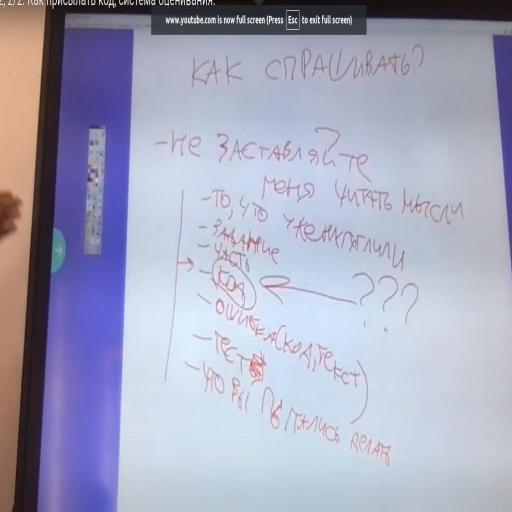 2, 2/2. Как присылать код, система оценивания.
www.youtube.com is now full screen (Press Esc to exit full screen)
КАК СПРАШИВАТЬ?
- НЕ ЗАСТАВЛЯЙТЕ
МЕНЯ ЧИТАТЬ МЫСЛИ
- ТО, ЧТО УЖЕ
- ЗАДАНИЕ
- ЧАСТЬ
- КОДА ???
- ОШИБКА (КОД, ТЕКСТ)
- ТЕСТ
- ЧТО ВЫ ПЫТАЛИСЬ ДЕЛАТЬ